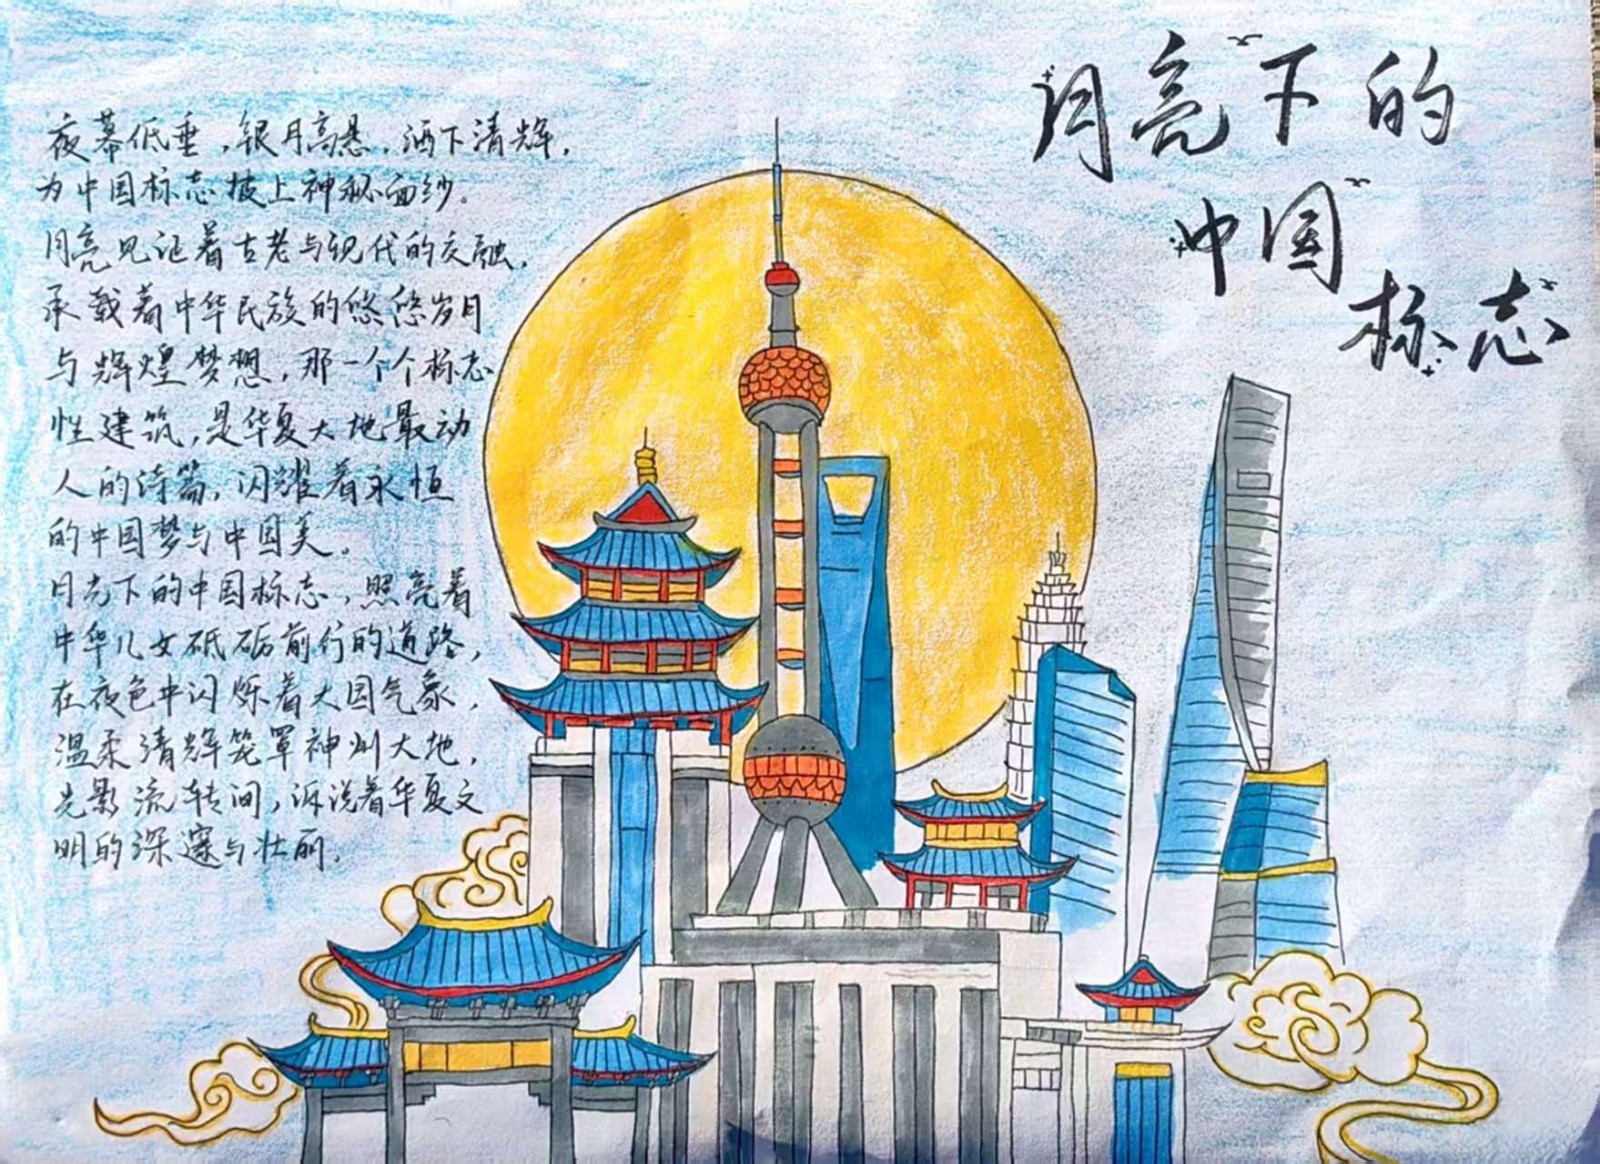 月亮下的
中国
标志
夜幕低垂，银月高悬，洒下清辉，
为中国标志披上神秘面纱。
月亮见证着古老与现代的交融，
承载着中华民族的悠悠岁月
与辉煌梦想，那一个个标志
性建筑，是华夏大地最动
人的诗篇，闪耀着永恒
的中国梦与中国美。
月光下的中国标志，照亮着
中华儿女砥砺前行的道路，
在夜色中闪烁着大国气象，
温柔清辉笼罩神州大地，
光影流转间，诉说着华夏文
明的深邃与壮丽。